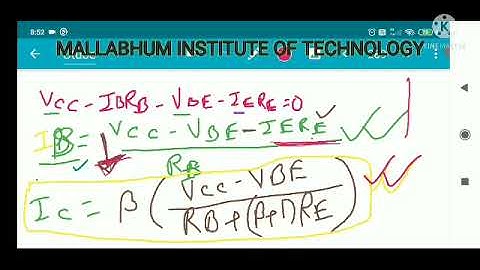 8:52
MALLABHUM INSTITUTE OF TECHNOLOGY
KINEMASTER
VCC - IBRB - VBE - IERE = 0
IB = VCC - VBE - IERE
RB
IC = β ( VCC - VBE
RB + (β+1) RE )